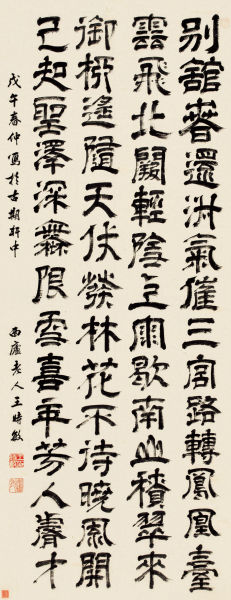 別舘春還淑氣催三宮路轉鳳凰臺
雲飛北闕輕陰立雨歇南山積翠來
御柳遙隨天仗發林花不待曉風開
已知聖澤深無限雪喜年芳入睿才
戊午春仲寫於古期軒中
西廬老人王時敏